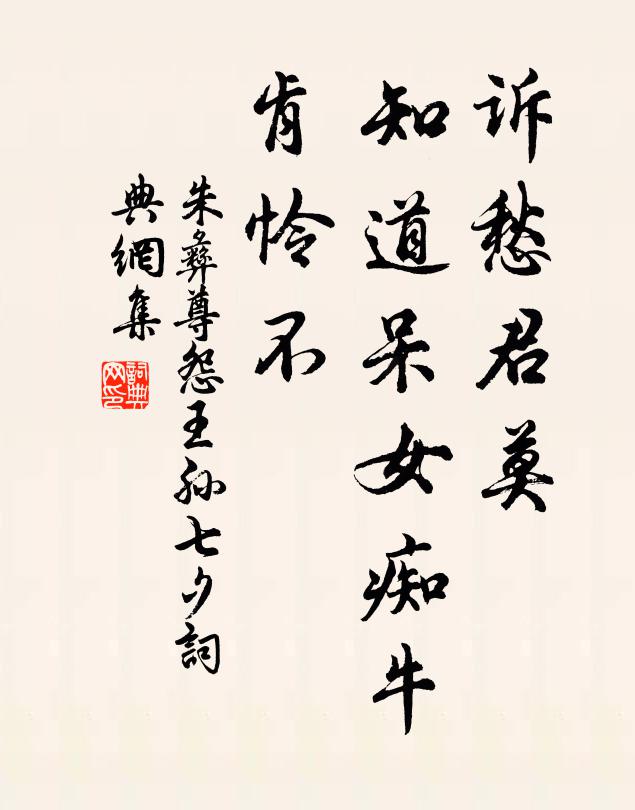 訴愁君莫
知道呆女痴牛
肯怜不
朱彝尊怨王孙七夕詞
典網集
詞典网印